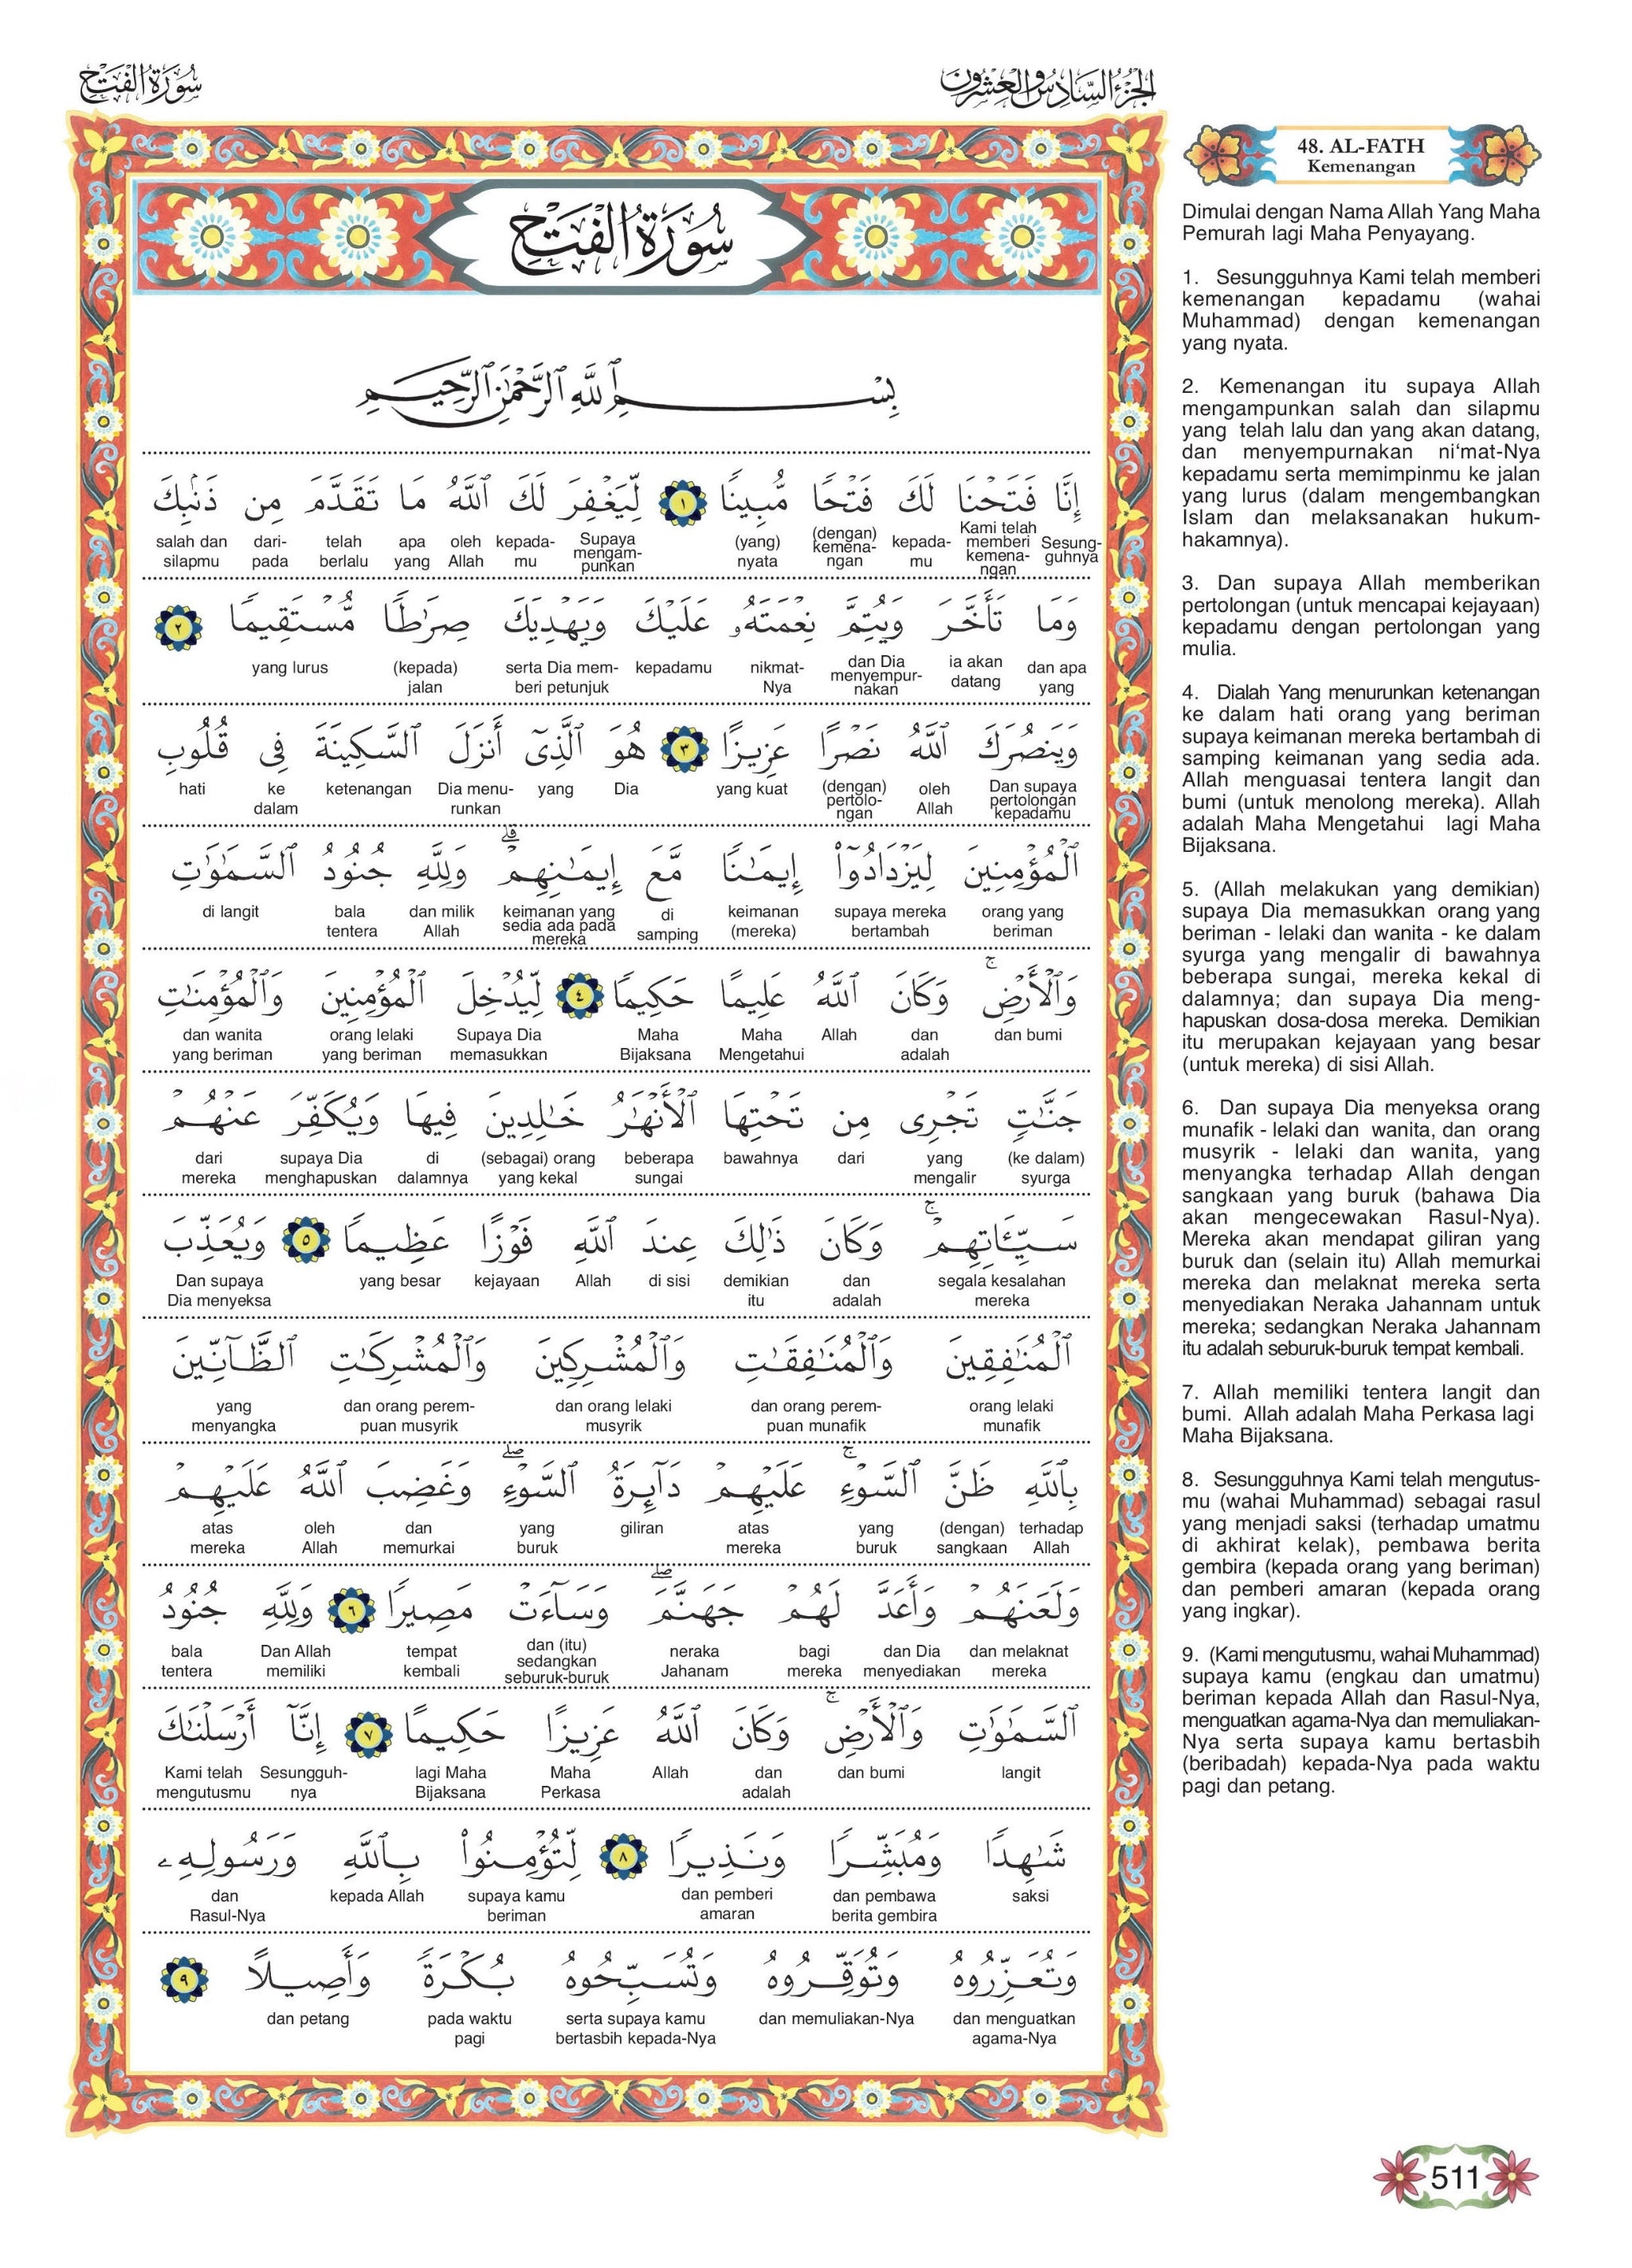 سُورَةُ الفَتْحِ
الجُزْءُ السَّادِسُ وَالعِشْرُونَ
سُورَةُ الفَتْحِ
بِسْمِ ٱللَّهِ ٱلرَّحْمَٰنِ ٱلرَّحِيمِ
إِنَّا فَتَحْنَا لَكَ فَتْحًا مُّبِينًا ١ لِّيَغْفِرَ لَكَ ٱللَّهُ مَا تَقَدَّمَ مِن ذَنۢبِكَ
Sesung-guhnya
Kami telah memberi kemena-ngan
kepada-mu
(dengan) kemena-ngan
(yang) nyata
Supaya mengam-punkan
kepada-mu
oleh Allah
apa yang
telah berlalu
dari-pada
salah dan silapmu
وَمَا تَأَخَّرَ وَيُتِمَّ نِعْمَتَهُۥ عَلَيْكَ وَيَهْدِيَكَ صِرَٰطًا مُّسْتَقِيمًا ٢
dan apa yang
ia akan datang
dan Dia menyempur-nakan
nikmat-Nya
kepadamu
serta Dia mem-beri petunjuk
(kepada) jalan
yang lurus
وَيَنصُرَكَ ٱللَّهُ نَصْرًا عَزِيزًا ٣ هُوَ ٱلَّذِىٓ أَنزَلَ ٱلسَّكِينَةَ فِى قُلُوبِ
Dan supaya pertolongan kepadamu
oleh Allah
(dengan) pertolo-ngan
yang kuat
Dia
yang
Dia menu-runkan
ketenangan
ke dalam
hati
ٱلْمُؤْمِنِينَ لِيَزْدَادُوٓا۟ إِيمَٰنًا مَّعَ إِيمَٰنِهِمْ ۗ وَلِلَّهِ جُنُودُ ٱلسَّمَٰوَٰتِ
orang yang beriman
supaya mereka bertambah
keimanan (mereka)
di samping
keimanan yang sedia ada pada mereka
dan milik Allah
bala tentera
di langit
وَٱلْأَرْضِ ۚ وَكَانَ ٱللَّهُ عَلِيمًا حَكِيمًا ٤ لِّيُدْخِلَ ٱلْمُؤْمِنِينَ وَٱلْمُؤْمِنَٰتِ
dan bumi
dan adalah
Allah
Maha Mengetahui
Maha Bijaksana
Supaya Dia memasukkan
orang lelaki yang beriman
dan wanita yang beriman
جَنَّٰتٍ تَجْرِى مِن تَحْتِهَا ٱلْأَنْهَٰرُ خَٰلِدِينَ فِيهَا وَيُكَفِّرَ عَنْهُمْ
(ke dalam) syurga
yang mengalir
dari
bawahnya
beberapa sungai
(sebagai) orang yang kekal
di dalamnya
supaya Dia menghapuskan
dari mereka
سَيِّـَٔاتِهِمْ ۚ وَكَانَ ذَٰلِكَ عِندَ ٱللَّهِ فَوْزًا عَظِيمًا ٥ وَيُعَذِّبَ
segala kesalahan mereka
dan adalah
demikian itu
di sisi
Allah
kejayaan
yang besar
Dan supaya Dia menyeksa
ٱلْمُنَٰفِقِينَ وَٱلْمُنَٰفِقَٰتِ وَٱلْمُشْرِكِينَ وَٱلْمُشْرِكَٰتِ ٱلظَّآنِّينَ
orang lelaki munafik
dan orang perem-puan munafik
dan orang lelaki musyrik
dan orang perem-puan musyrik
yang menyangka
بِٱللَّهِ ظَنَّ ٱلسَّوْءِ ۚ عَلَيْهِمْ دَآئِرَةُ ٱلسَّوْءِ ۖ وَغَضِبَ ٱللَّهُ عَلَيْهِمْ
terhadap Allah
(dengan) sangkaan
yang buruk
atas mereka
giliran
yang buruk
dan memurkai
oleh Allah
atas mereka
وَلَعَنَهُمْ وَأَعَدَّ لَهُمْ جَهَنَّمَ ۖ وَسَآءَتْ مَصِيرًا ٦ وَلِلَّهِ جُنُودُ
dan melaknat mereka
dan Dia menyediakan
bagi mereka
neraka Jahanam
dan (itu) sedangkan seburuk-buruk
tempat kembali
Dan Allah memiliki
bala tentera
ٱلسَّمَٰوَٰتِ وَٱلْأَرْضِ ۚ وَكَانَ ٱللَّهُ عَزِيزًا حَكِيمًا ٧ إِنَّآ أَرْسَلْنَٰكَ
langit
dan bumi
dan adalah
Allah
Maha Perkasa
lagi Maha Bijaksana
Sesungguh-nya
Kami telah mengutusmu
شَٰهِدًا وَمُبَشِّرًا وَنَذِيرًا ٨ لِّتُؤْمِنُوا۟ بِٱللَّهِ وَرَسُولِهِۦ
saksi
dan pembawa berita gembira
dan pemberi amaran
supaya kamu beriman
kepada Allah
dan Rasul-Nya
وَتُعَزِّرُوهُ وَتُوَقِّرُوهُ وَتُسَبِّحُوهُ بُكْرَةً وَأَصِيلًا ٩
dan menguatkan agama-Nya
dan memuliakan-Nya
serta supaya kamu bertasbih kepada-Nya
pada waktu pagi
dan petang
48. AL-FATH
Kemenangan
Dimulai dengan Nama Allah Yang Maha
Pemurah lagi Maha Penyayang.
1. Sesungguhnya Kami telah memberi
kemenangan kepadamu (wahai
Muhammad) dengan kemenangan
yang nyata.
2. Kemenangan itu supaya Allah
mengampunkan salah dan silapmu
yang telah lalu dan yang akan datang,
dan menyempurnakan ni‘mat-Nya
kepadamu serta memimpinmu ke jalan
yang lurus (dalam mengembangkan
Islam dan melaksanakan hukum-
hakamnya).
3. Dan supaya Allah memberikan
pertolongan (untuk mencapai kejayaan)
kepadamu dengan pertolongan yang
mulia.
4. Dialah Yang menurunkan ketenangan
ke dalam hati orang yang beriman
supaya keimanan mereka bertambah di
samping keimanan yang sedia ada.
Allah menguasai tentera langit dan
bumi (untuk menolong mereka). Allah
adalah Maha Mengetahui lagi Maha
Bijaksana.
5. (Allah melakukan yang demikian)
supaya Dia memasukkan orang yang
beriman - lelaki dan wanita - ke dalam
syurga yang mengalir di bawahnya
beberapa sungai, mereka kekal di
dalamnya; dan supaya Dia meng-
hapuskan dosa-dosa mereka. Demikian
itu merupakan kejayaan yang besar
(untuk mereka) di sisi Allah.
6. Dan supaya Dia menyeksa orang
munafik - lelaki dan wanita, dan orang
musyrik - lelaki dan wanita, yang
menyangka terhadap Allah dengan
sangkaan yang buruk (bahawa Dia
akan mengecewakan Rasul-Nya).
Mereka akan mendapat giliran yang
buruk dan (selain itu) Allah memurkai
mereka dan melaknat mereka serta
menyediakan Neraka Jahannam untuk
mereka; sedangkan Neraka Jahannam
itu adalah seburuk-buruk tempat kembali.
7. Allah memiliki tentera langit dan
bumi. Allah adalah Maha Perkasa lagi
Maha Bijaksana.
8. Sesungguhnya Kami telah mengutus-
mu (wahai Muhammad) sebagai rasul
yang menjadi saksi (terhadap umatmu
di akhirat kelak), pembawa berita
gembira (kepada orang yang beriman)
dan pemberi amaran (kepada orang
yang ingkar).
9. (Kami mengutusmu, wahai Muhammad)
supaya kamu (engkau dan umatmu)
beriman kepada Allah dan Rasul-Nya,
menguatkan agama-Nya dan memuliakan-
Nya serta supaya kamu bertasbih
(beribadah) kepada-Nya pada waktu
pagi dan petang.
511